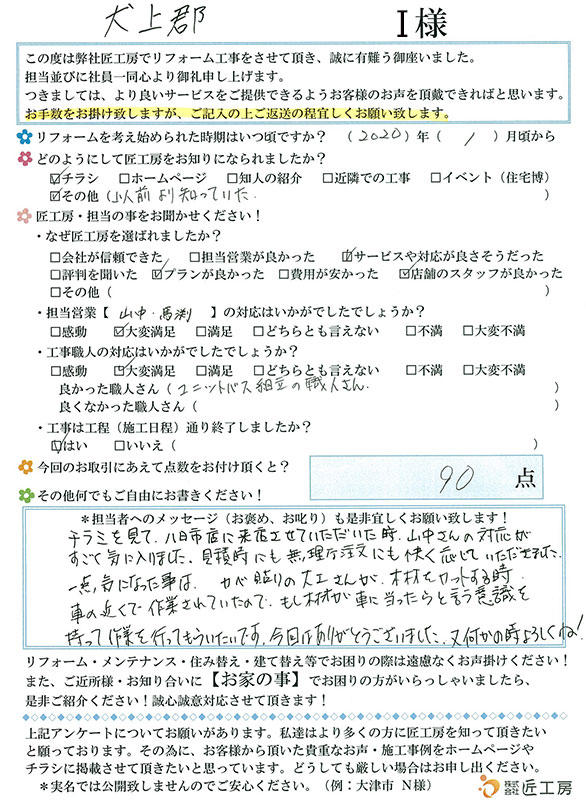 犬上郡 I様
この度は弊社匠工房でリフォーム工事をさせて頂き、誠に有難う御座いました。
担当並びに社員一同心より御礼申し上げます。
つきましては、より良いサービスをご提供できるようお客様のお声を頂戴できればと思います。
お手数をお掛け致しますが、ご記入の上ご返送の程宜しくお願い致します。
リフォームを考え始められた時期はいつ頃ですか？ （2020）年（ 1 ）月頃から
どのようにして匠工房をお知りになられましたか？
☑チラシ □ホームページ □知人の紹介 □近隣での工事 □イベント（住宅博）
☑その他（以前より知っていた. ）
匠工房・担当の事をお聞かせください！
・なぜ匠工房を選ばれましたか？
□会社が信頼できた □担当営業が良かった ☑サービスや対応が良さそうだった
□評判を聞いた ☑プランが良かった □費用が安かった ☑店舗のスタッフが良かった
□その他（ ）
・担当営業【 山中・馬渕 】の対応はいかがでしたでしょうか？
□感動 ☑大変満足 □満足 □どちらとも言えない □不満 □大変不満
・工事職人の対応はいかがでしたでしょうか？
□感動 ☑大変満足 □満足 □どちらとも言えない □不満 □大変不満
良かった職人さん（ ユニットバス組立の職人さん. ）
良くなかった職人さん（ ）
・工事は工程（施工日程）通り終了しましたか？
☑はい □いいえ（ ）
今回のお取引にあえて点数をお付け頂くと？ 90 点
その他何でもご自由にお書きください！
＊担当者へのメッセージ（お褒め、お叱り）も是非宜しくお願い致します！
チラミを見て、八日市店に来店させていただいた時、山中さんの対応が
すごく気に入りました、見積時にも無理な注文にも快く応じていただきました。
一点、気になった事は、カベ貼りの大工さんが、木材をカットする時
車の近くで作業されていたので、もし木材が車に当ったらと言う意識を
持って作業を行ってもらいたいです。今回はありがとうございました、又何かの時よろしくね！
リフォーム・メンテナンス・住み替え・建て替え等でお困りの際は遠慮なくお声掛けください！
また、ご近所様・お知り合いに【お家の事】でお困りの方がいらっしゃいましたら、
是非ご紹介ください！誠心誠意対応させて頂きます！
上記アンケートについてお願いがあります。私達はより多くの方に匠工房を知って頂きたい
と願っております。その為に、お客様から頂いた貴重なお声・施工事例をホームページや
チラシに掲載させて頂きたいと思っています。どうしても厳しい場合はお申し出ください。
＊実名では公開致しませんのでご安心ください。（例：大津市 N様） 株式会社 匠工房